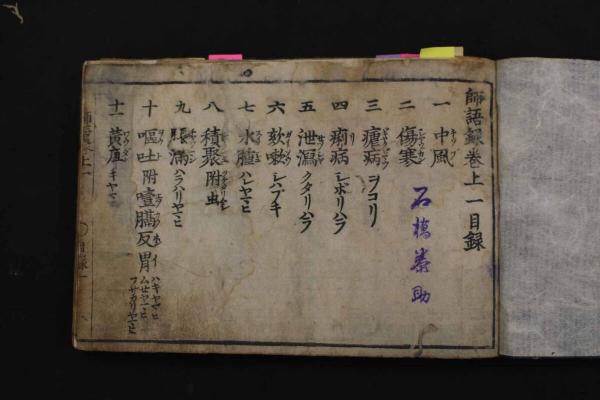 師語録巻上一目録
一 中風
二 傷寒
石橋 助
三 瘧病 ヲコリ
四 痢病 シボリハラ
五 泄瀉 クタリハラ
六 欬嗽 シハブキ
七 水腫 ハレヤマヒ
八 積聚附虫
九 脹満 ハラハリヤマヒ
十 嘔吐附噎膈反胃 ハキヤマヒ ムセヤマヒ フサカリヤマヒ
十一 黄疸 キヤマヒ